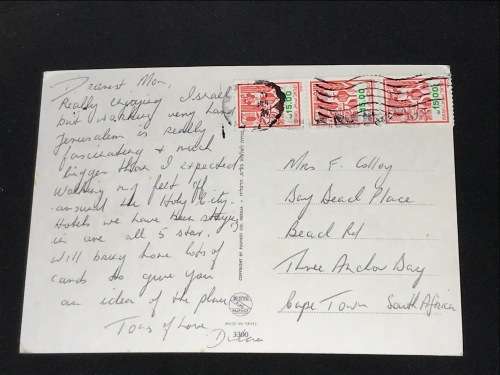 Dearest Mom,
Really enjoying Israel
but working very hard
Jerusalem is really
fascinating & much
bigger than I expected
Walking my feet off
around the Holy City.
Hotels we have been staying
in are all 5 star.
Will bring home lots of
cards to give you
an idea of the place
Tons of Love
15.00
15.00
15.00
Mrs F.
Bay Place
Beach Rd
Three Anchor Bay
Cape Town South Africa
3300